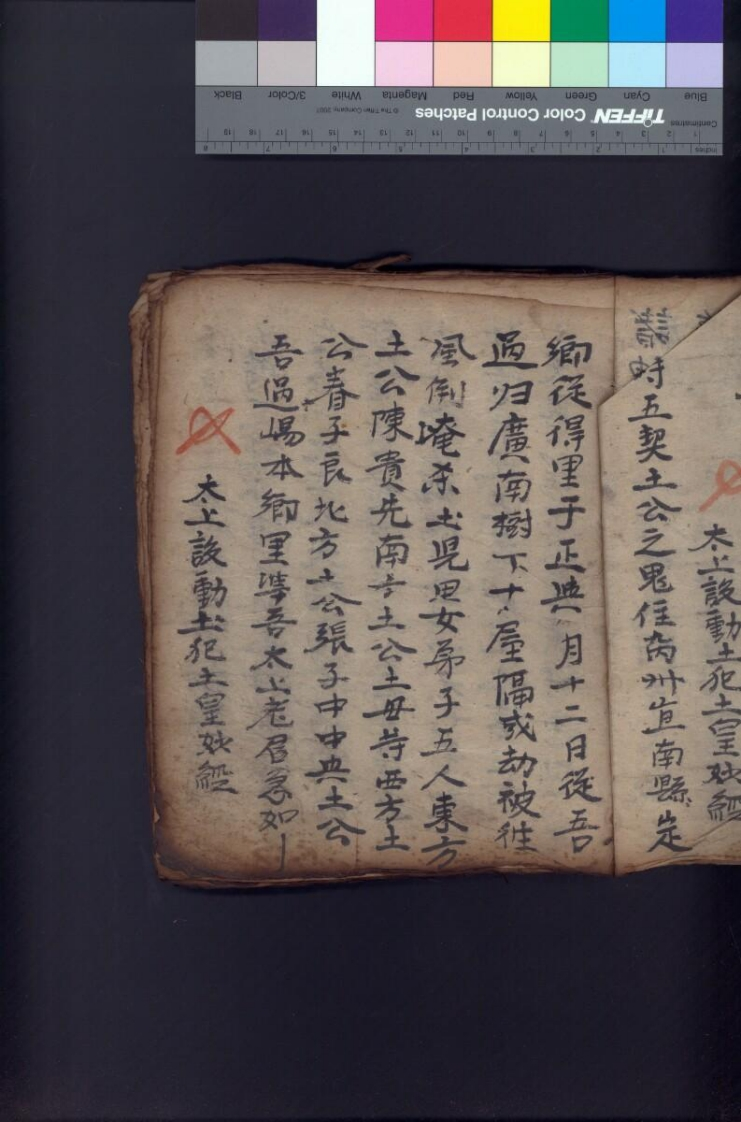 太上設動土犯土皇妙經
時五契土公之鬼住南州直南縣定
鄉從得里于正典月十二日從吾
過归廣南樹下十屋隔或劫被往
風倒埯杀土児男女弟子五人東方
土公陳貴先南方土公土毋苻西方土
公春子良北方土公張子中中央土公
吾過場本鄉里等吾太上老君急如
太上設動土犯土皇妙經
Blue Cyan Green Yellow Red Magenta White 3/Color Black
TIFFEN Color Control Patches
© The Tiffen Company, 2007
Centimetres
Inches